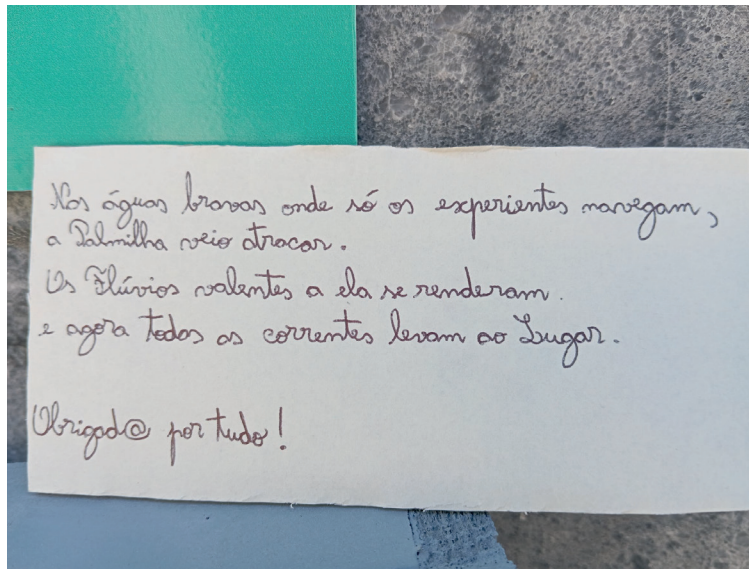 Nas águas bravas onde só os experientes navegam,
a Palmilha veio atracar.
Os Flúvios valentes a ela se renderam.
e agora todas as correntes levam ao Lugar.
Obrigad@ por tudo!